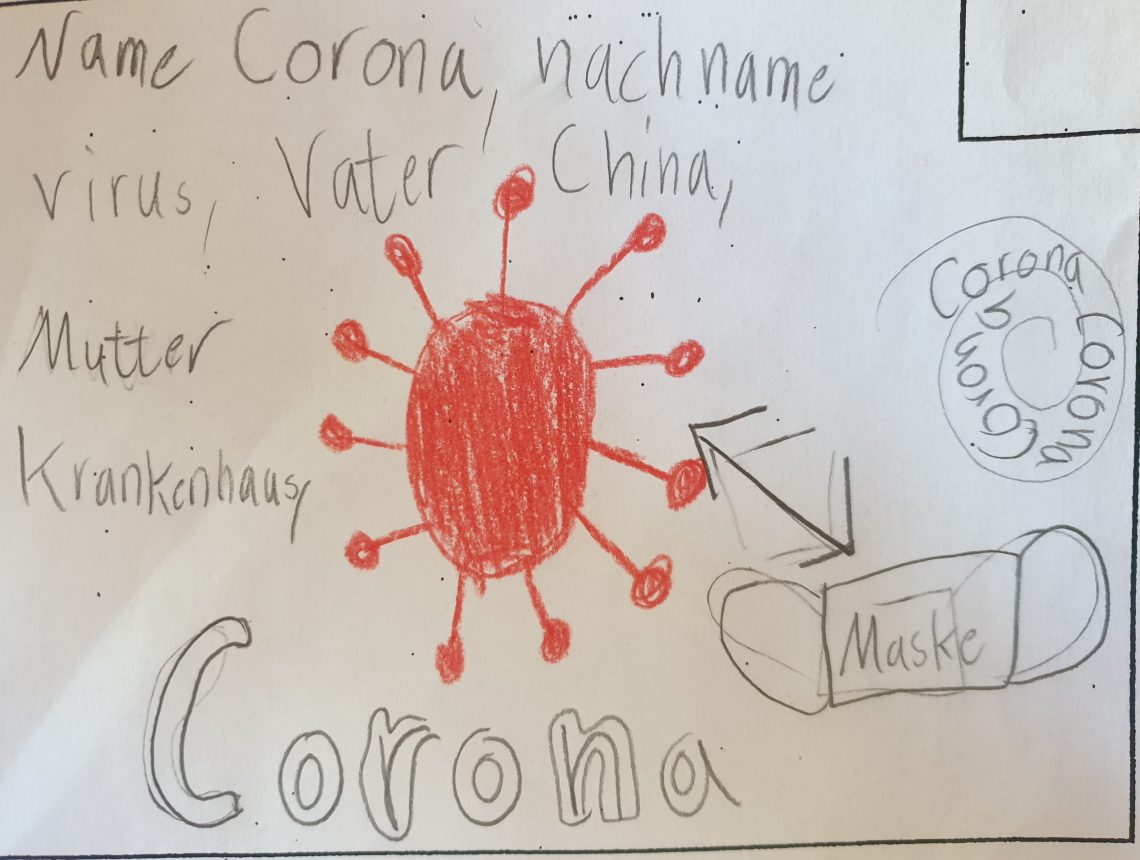 Name Corona, nachname
virus, Vater China,
Mutter
Krankenhaus,
Corona Corona Corona
Maske
Corona